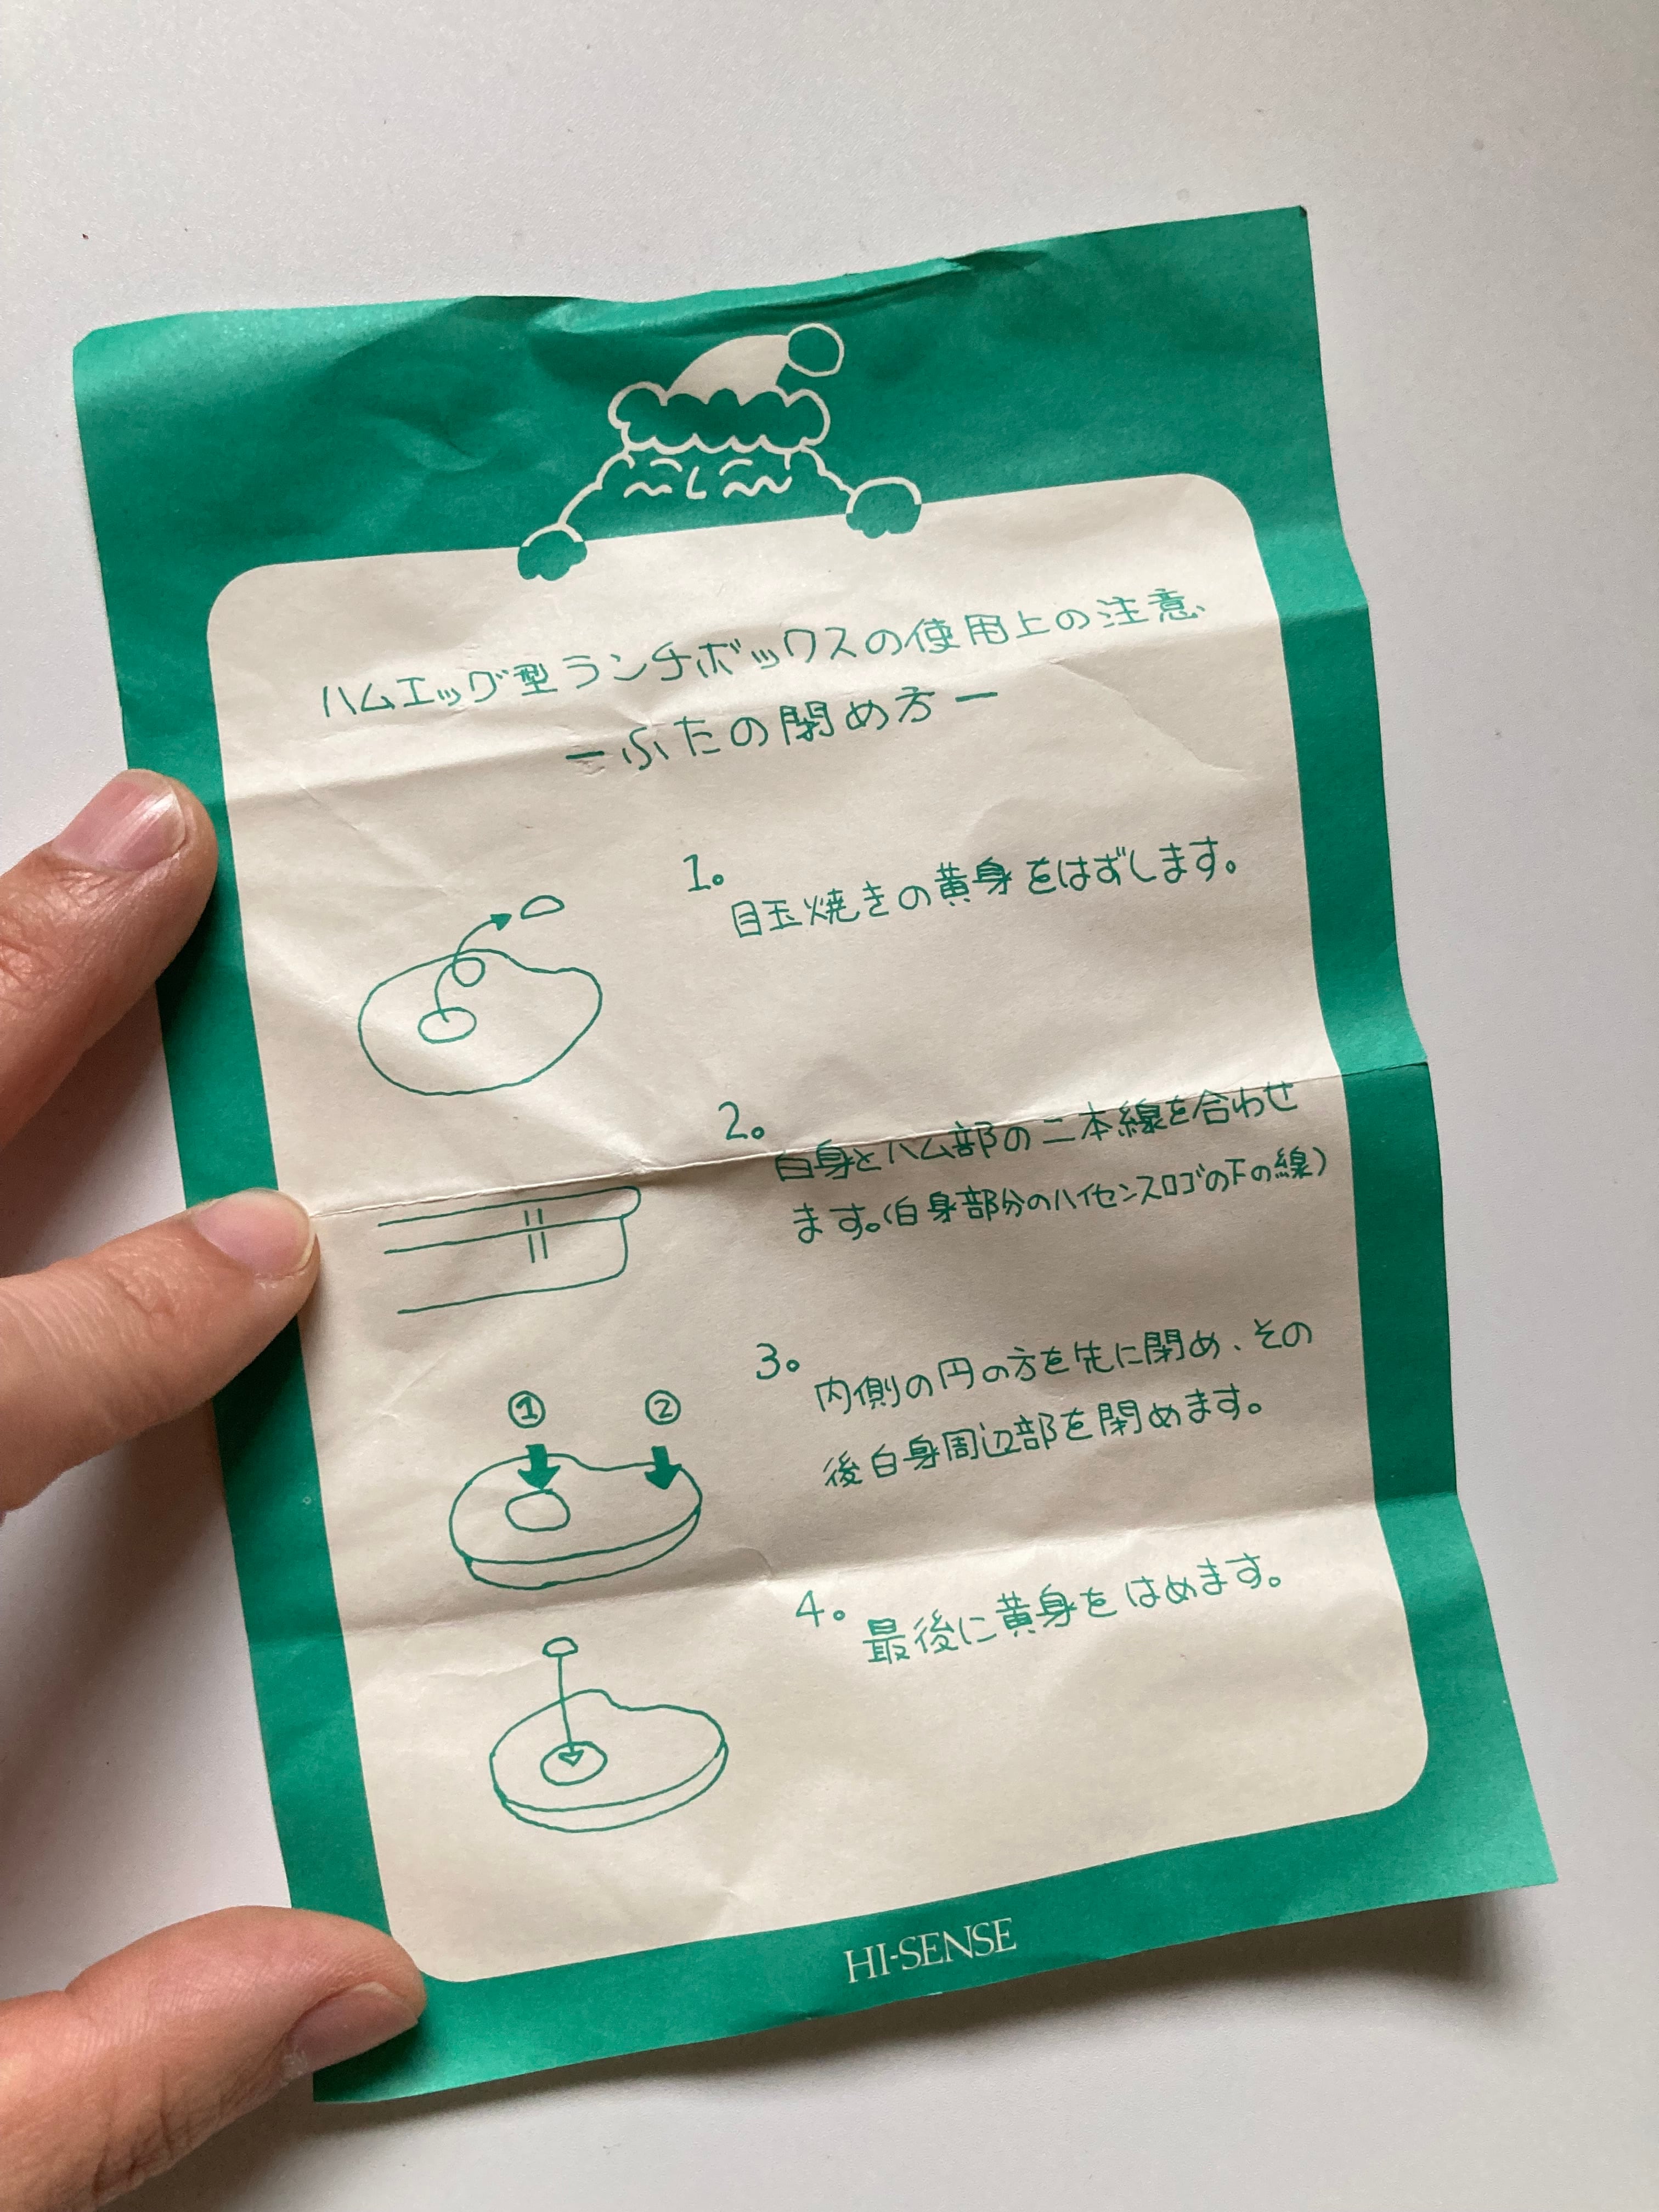 ハムエッグ型ランチボックスの使用上の注意
ーふたの閉め方ー
1。
目玉焼きの黄身をはずします。
2。
白身とハム部の二本線を合わせ
ます。(白身部分のハイセンスロゴの下の線)
①
②
3。
内側の円の方を先に閉め、その
後白身周辺部を閉めます。
4。
最後に黄身をはめます。
HI-SENSE